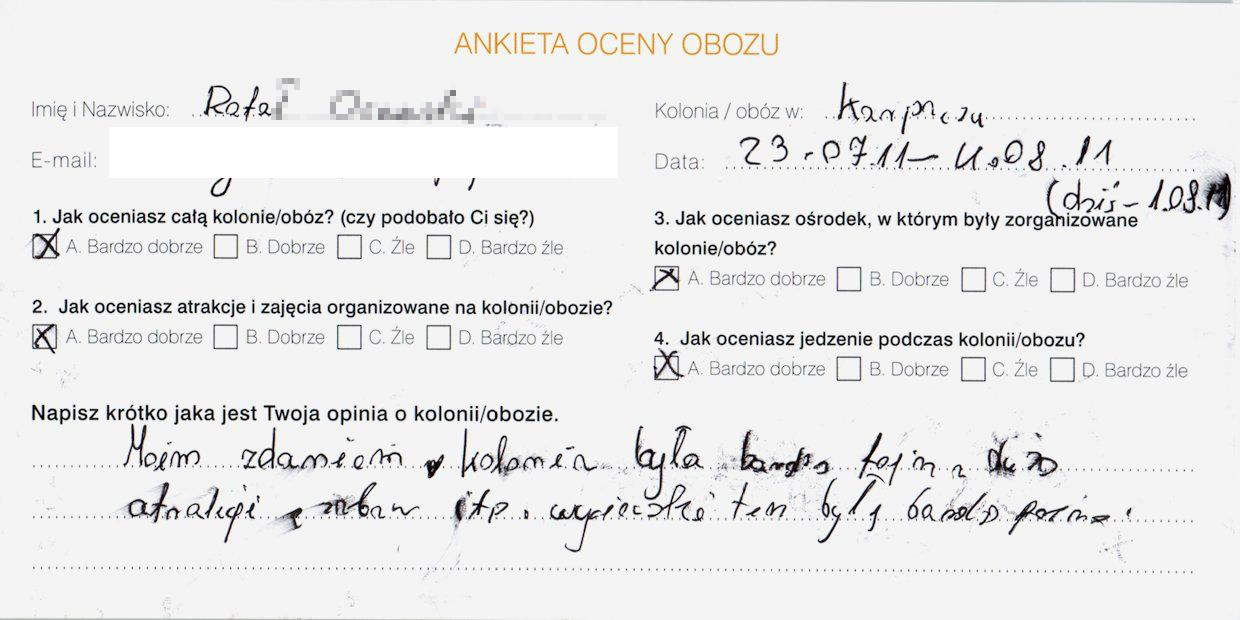 ANKIETA OCENY OBOZU
Imię i Nazwisko: Rafał
E-mail:
Kolonia / obóz w: Karpaczu
Data: 23.07.11 – 4.08.11
(dziś – 1.08.11)
1. Jak oceniasz całą kolonie/obóz? (czy podobało Ci się?)
A. Bardzo dobrze B. Dobrze C. Źle D. Bardzo źle
2. Jak oceniasz atrakcje i zajęcia organizowane na kolonii/obozie?
A. Bardzo dobrze B. Dobrze C. Źle D. Bardzo źle
3. Jak oceniasz ośrodek, w którym były zorganizowane
kolonie/obóz?
A. Bardzo dobrze B. Dobrze C. Źle D. Bardzo źle
4. Jak oceniasz jedzenie podczas kolonii/obozu?
A. Bardzo dobrze B. Dobrze C. Źle D. Bardzo źle
Napisz krótko jaka jest Twoja opinia o kolonii/obozie.
Moim zdaniem kolonia była bardzo fajna dużo
itp. wycieczki też były bardzo